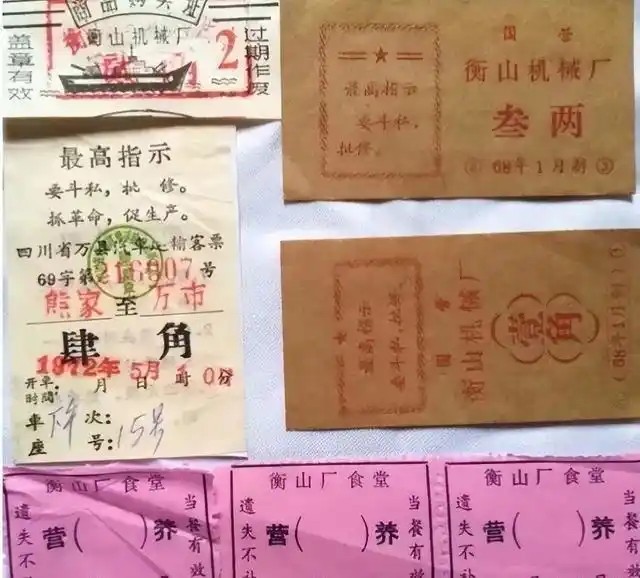 商品购买证
衡山机械厂
2
盖章有效
过期作废
国营
衡山机械厂
叁两
68年1月制
最高指示
要斗私,
批修。
最高指示
要斗私,批 修。
抓革命,促生产。
四川省万县汽车运输客票
69字第 216807 号
熊家 至 万市
肆 角
1972年5月1
开车时间: 月 日 时 0分
车 次:
座 号:15号
国营
衡山机械厂
壹角
(68年1月制)
最高指示
要斗私,批修。
衡山厂食堂
营( )养
遗失不补
当餐有效
衡山厂食堂
营( )养
遗失不补
当餐有效
衡山厂食堂
营( )养
遗失不补
当餐有效